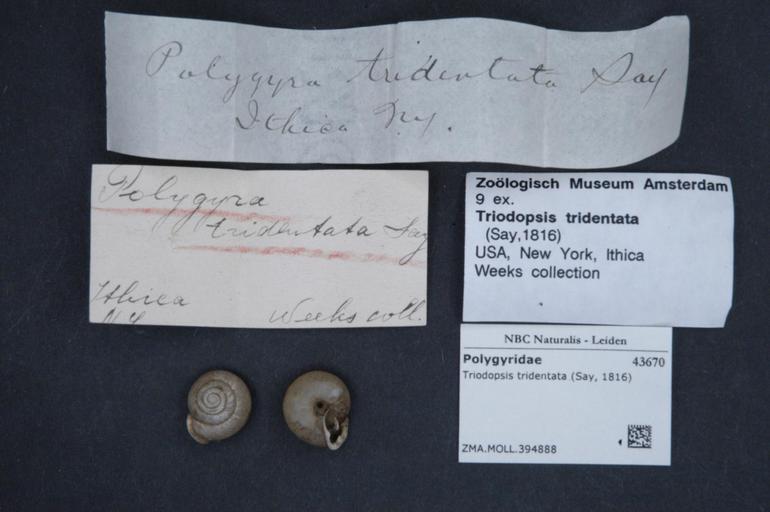 Polygyra tridentata Say
Ithica Ny.
Polygyra
tridentata Say
Ithica
N.Y.
Weeks coll.
Zoölogisch Museum Amsterdam
9 ex.
Triodopsis tridentata
(Say,1816)
USA, New York, Ithica
Weeks collection
NBC Naturalis - Leiden
Polygyridae 43670
Triodopsis tridentata (Say, 1816)
ZMA.MOLL.394888